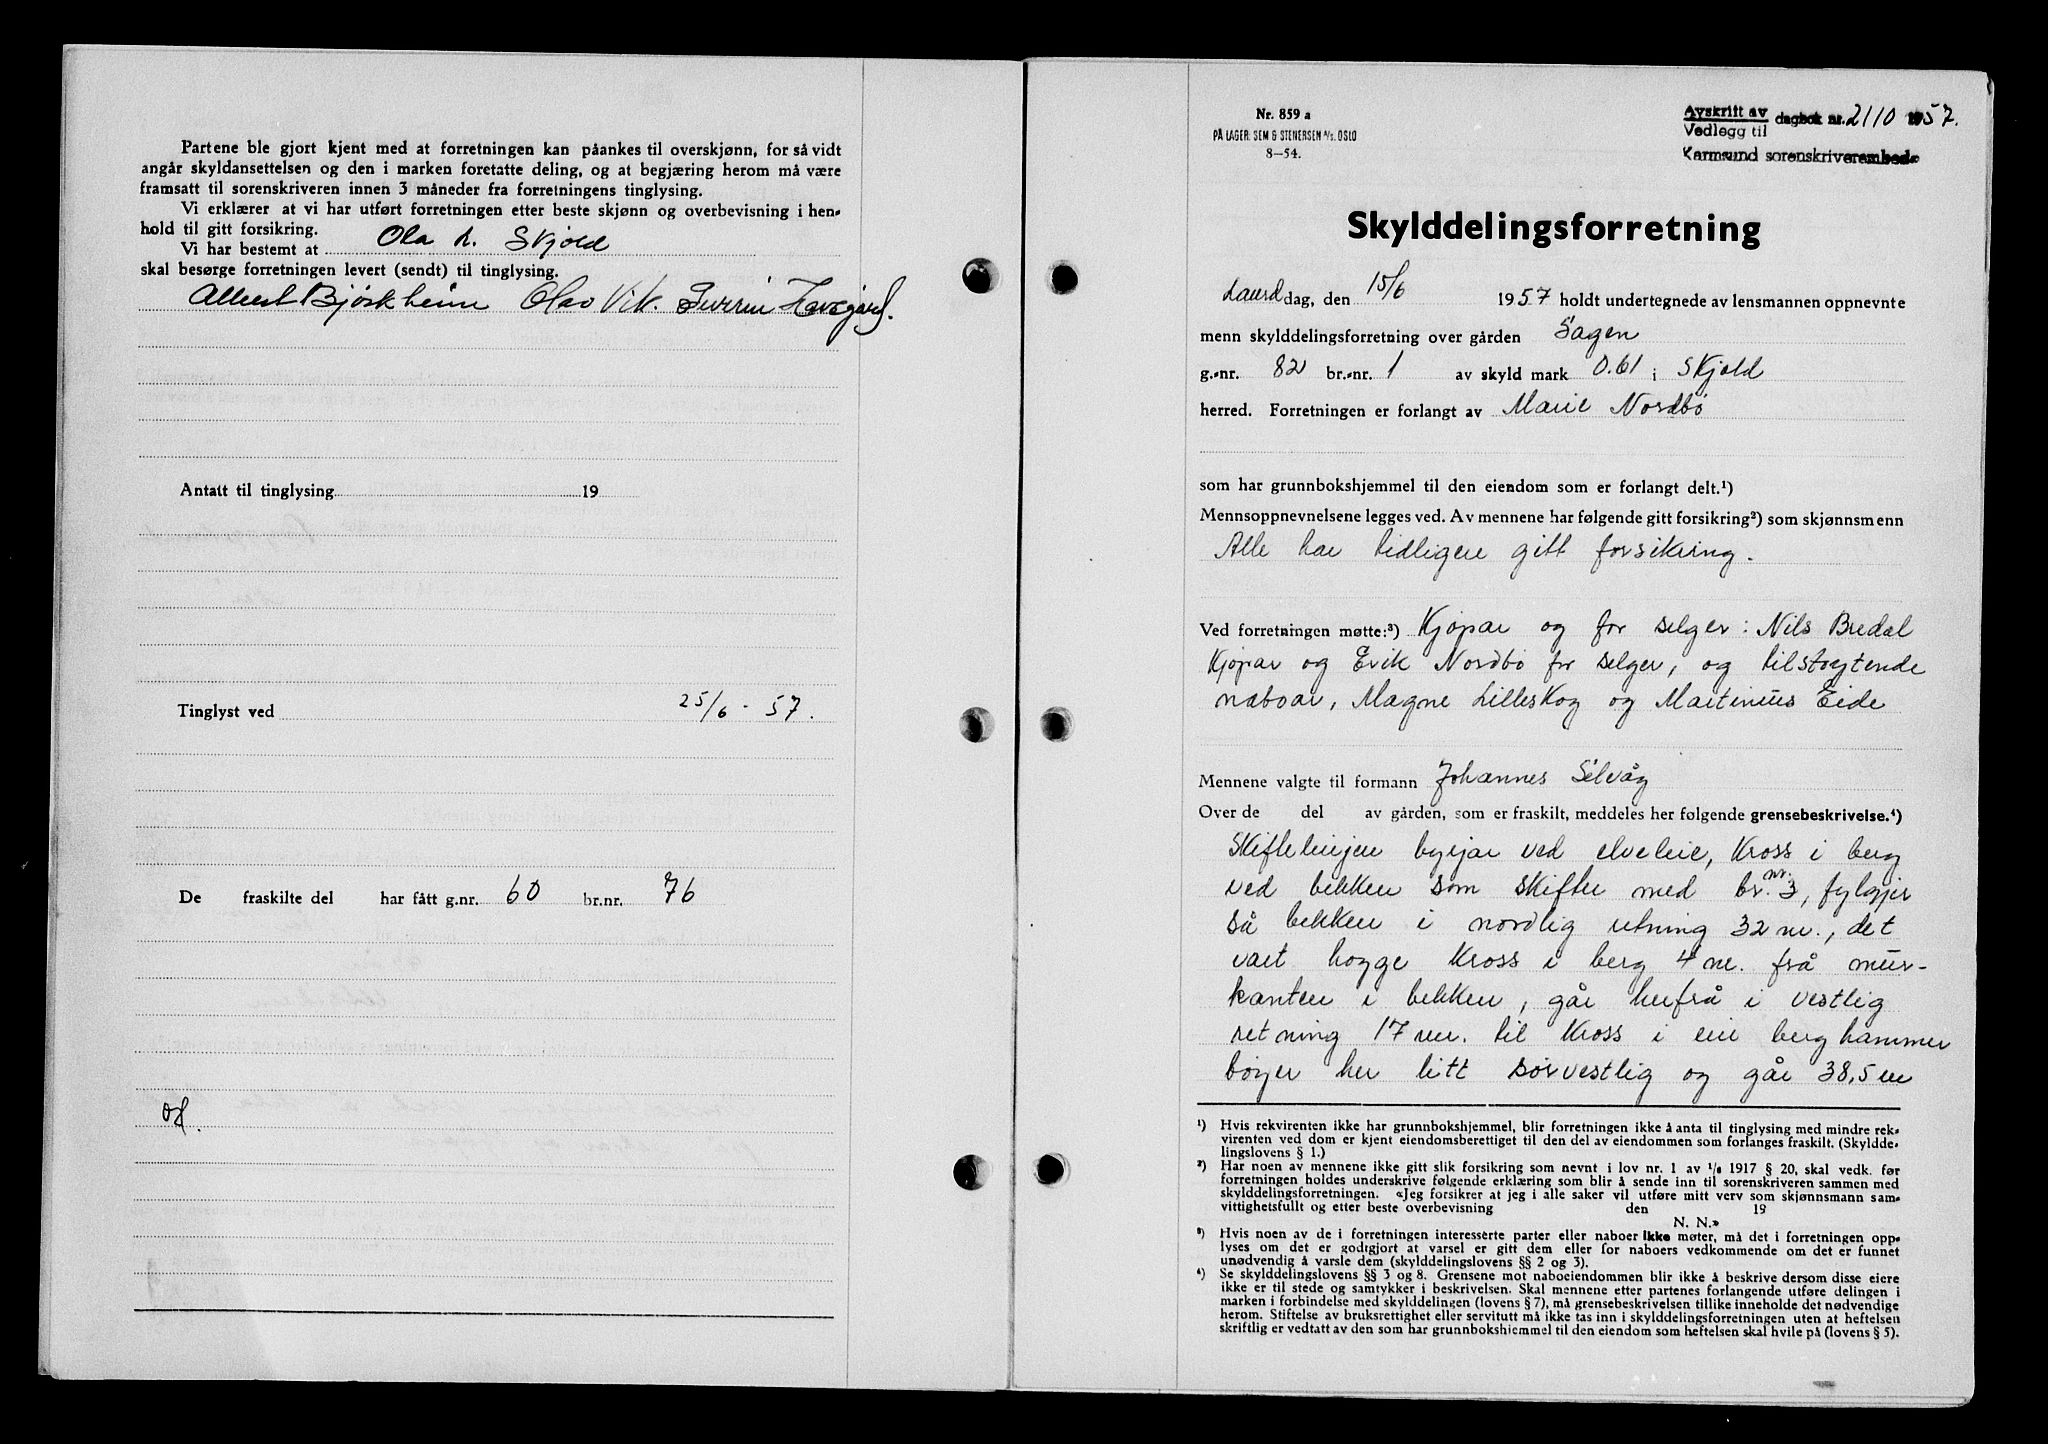 Partene ble gjort kjent med at forretningen kan påankes til overskjønn, for så vidt
angår skyldansettelsen og den i marken foretatte deling, og at begjæring herom må være
framsatt til sorenskriveren innen 3 måneder fra forretningens tinglysing.
Vi erklærer at vi har utført forretningen etter beste skjønn og overbevisning i hen-
hold til gitt forsikring.
Vi har bestemt at Ola L. Skjold
skal besørge forretningen levert (sendt) til tinglysing.
Albert Bjørkheim Olav Vik. Sverrin Havegard.
Antatt til tinglysing 19
Tinglyst ved 25/6 - 57.
De fraskilte del har fått g.nr. 60 br.nr. 76
Nr. 859 a
PÅ LAGER: SEM & STENERSEN A/S. OSLO
8-54.
Avskrift av dagbok nr. 2110 1957.
Vedlegg til
Karmsund sorenskriverembede
Skylddelingsforretning
Laurd dag, den 15/6 1957 holdt undertegnede av lensmannen oppnevnte
menn skylddelingsforretning over gården Sagen
g.-nr. 82 br.-nr. 1 av skyld mark 0.61 i Skjold
herred. Forretningen er forlangt av Marie Nordbø
som har grunnbokshjemmel til den eiendom som er forlangt delt.¹)
Mennsoppnevnelsene legges ved. Av mennene har følgende gitt forsikring²) som skjønnsmenn
Alle har tidligere gitt forsikring.
Ved forretningen møtte:³) Kjøpar og for selger: Nils Bredal
Kjøpar og Erik Nordbø for selger, og tilstøytende
naboar, Magne Lilleskog og Martinius Eide
Mennene valgte til formann Johannes Selvåg
Over de del av gården, som er fraskilt, meddeles her følgende grensebeskrivelse.⁴)
Skiftelinjen byrjar ved elveleie, Kross i berg
ved bekken som skifter med br. nr. 3, fylgjer
så bekken i nordlig retning 32 m., det
vart hogge Kross i berg 4 m. frå mur-
kanten i bekken, går herfrå i vestlig
retning 17 m. til Kross i ein berghammer
bøyer her litt sørvestlig og går 38,5 m
¹) Hvis rekvirenten ikke har grunnbokshjemmel, blir forretningen ikke å anta til tinglysing med mindre rek-
virenten ved dom er kjent eiendomsberettiget til den del av eiendommen som forlanges fraskilt. (Skyldde-
lingslovens § 1.)
²) Har noen av mennene ikke gitt slik forsikring som nevnt i lov nr. 1 av 1/6 1917 § 20, skal vedk. før
forretningen holdes underskrive følgende erklæring som blir å sende inn til sorenskriveren sammen med
skylddelingsforretningen. «Jeg forsikrer at jeg i alle saker vil utføre mitt verv som skjønnsmann sam-
vittighetsfullt og etter beste overbevisning den 19
N. N.»
³) Hvis noen av de i forretningen interesserte parter eller naboer ikke møter, må det i forretningen opp-
lyses om det er godtgjort at varsel er gitt dem eller for naboers vedkommende om det er funnet
unødvendig å varsle dem (skylddelingslovens §§ 2 og 3).
⁴) Se skylddelingslovens §§ 3 og 8. Grensene mot naboeiendommen blir ikke å beskrive dersom disse eiere
ikke er til stede og samtykker i beskrivelsen. Skal mennene etter partenes forlangende utføre delingen i
marken i forbindelse med skylddelingen (lovens § 7), må grensebeskrivelsen tillike inneholde det nødvendige
herom. Stiftelse av bruksrettighet eller servitutt må ikke tas inn i skylddelingsforretningen uten at heftelsen
skriftlig er vedtatt av den som har grunnbokshjemmel til den eiendom som heftelsen skal hvile på (lovens § 5).